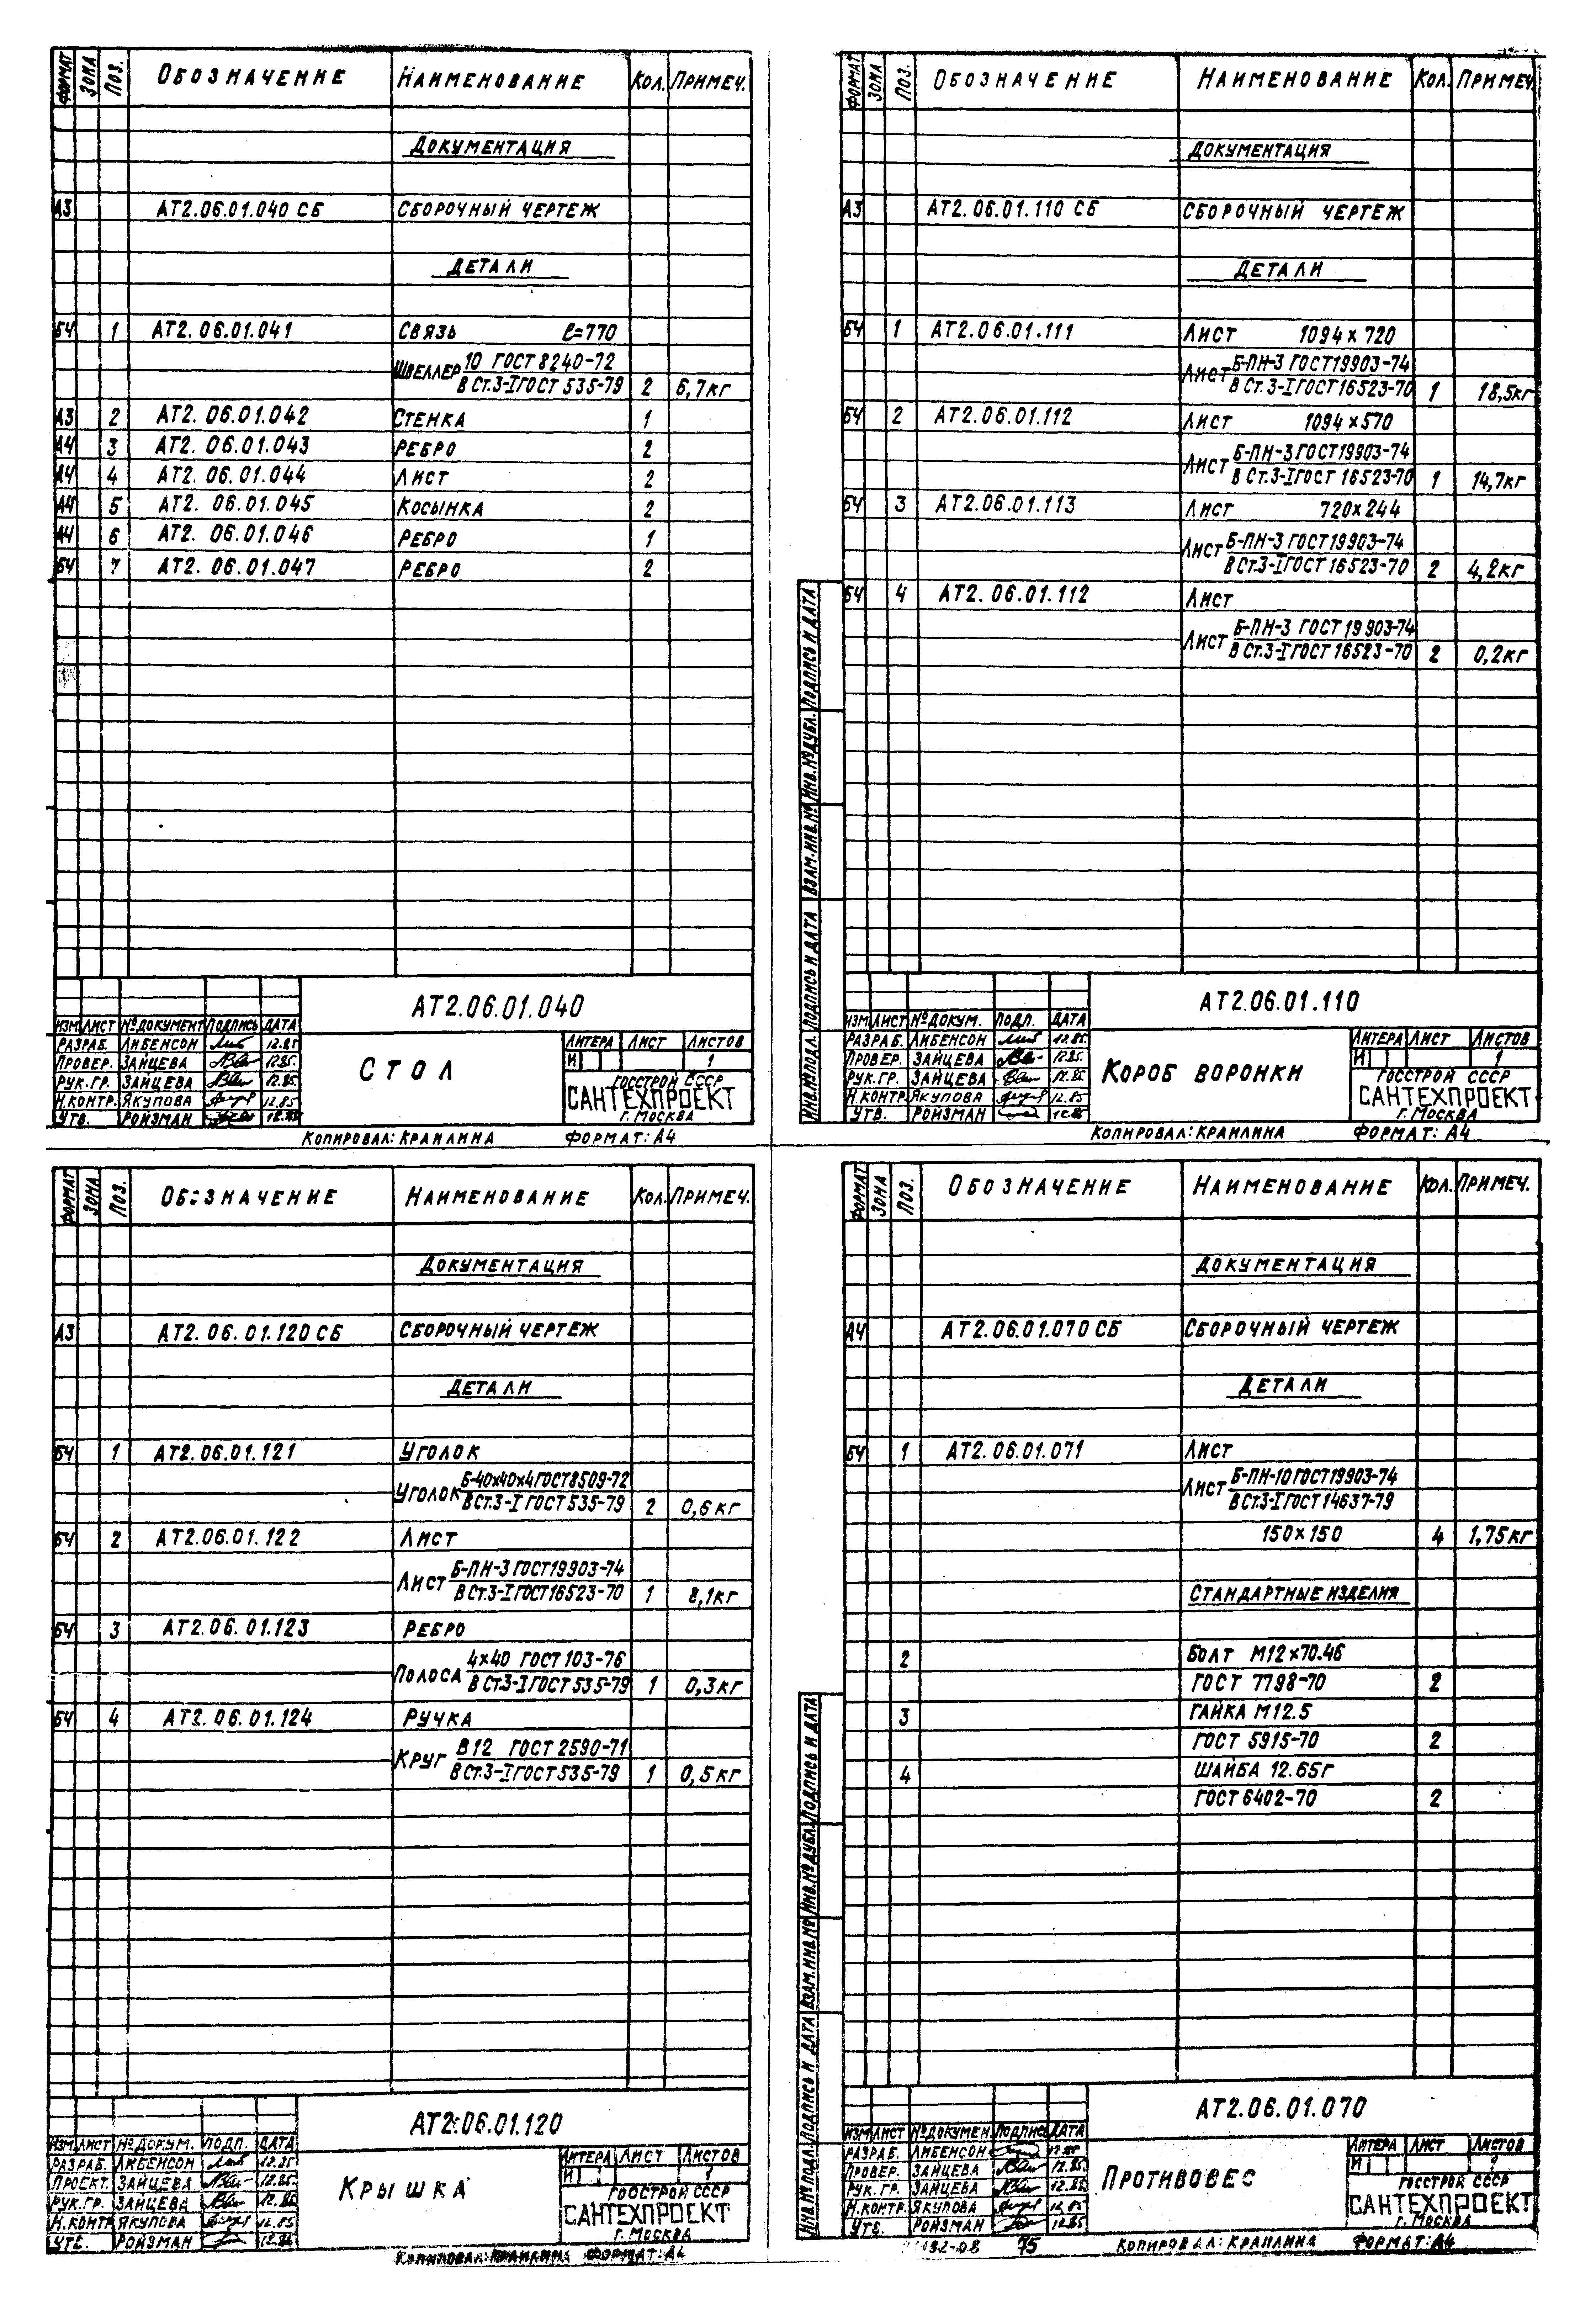 ФОРМАТ ЗОНА ПОЗ. ОБОЗНАЧЕНИЕ НАИМЕНОВАНИЕ КОЛ. ПРИМЕЧ.
ДОКУМЕНТАЦИЯ
А3 АТ2.06.01.040 СБ СБОРОЧНЫЙ ЧЕРТЕЖ
ДЕТАЛИ
БЧ 1 АТ2.06.01.041 СВЯЗЬ ℓ=770
ШВЕЛЛЕР 10 ГОСТ 8240-72
В СТ.3-I ГОСТ 535-79 2 6,7кг
А3 2 АТ2.06.01.042 СТЕНКА 1
А4 3 АТ2.06.01.043 РЕБРО 2
А4 4 АТ2.06.01.044 ЛИСТ 2
А4 5 АТ2.06.01.045 КОСЫНКА 2
А4 6 АТ2.06.01.046 РЕБРО 1
БЧ 7 АТ2.06.01.047 РЕБРО 2
АТ2.06.01.040
ИЗМ ЛИСТ №ДОКУМЕНТ ПОДПИСЬ ДАТА
РАЗРАБ. ЛИБЕНСОН 12.85
ПРОВЕР. ЗАЙЦЕВА 12.85
РУК.ГР. ЗАЙЦЕВА 12.85
Н.КОНТР. ЯКУПОВА 12.85
УТВ. РОЙЗМАН 12.85
СТОЛ
ЛИТЕРА ЛИСТ ЛИСТОВ
И 1
ГОССТРОЙ СССР
САНТЕХПРОЕКТ
г. МОСКВА
КОПИРОВАЛ: КРАИЛИНА ФОРМАТ: А4
ФОРМАТ ЗОНА ПОЗ. ОБОЗНАЧЕНИЕ НАИМЕНОВАНИЕ КОЛ. ПРИМЕЧ.
ДОКУМЕНТАЦИЯ
А3 АТ2.06.01.110 СБ СБОРОЧНЫЙ ЧЕРТЕЖ
ДЕТАЛИ
БЧ 1 АТ2.06.01.111 ЛИСТ 1094×720
ЛИСТ Б-ПН-3 ГОСТ19903-74
В СТ.3-I ГОСТ16523-70 1 18,5кг
БЧ 2 АТ2.06.01.112 ЛИСТ 1094×570
ЛИСТ Б-ПН-3 ГОСТ19903-74
В СТ.3-I ГОСТ 16523-70 1 14,7кг
БЧ 3 АТ2.06.01.113 ЛИСТ 720×244
ЛИСТ Б-ПН-3 ГОСТ19903-74
В СТ.3-I ГОСТ 16523-70 2 4,2кг
БЧ 4 АТ2.06.01.112 ЛИСТ
ЛИСТ Б-ПН-3 ГОСТ 19903-74
В СТ.3-I ГОСТ 16523-70 2 0,2кг
ИНВ.№ПОДЛ. ПОДПИСЬ И ДАТА ВЗАМ.ИНВ.№ ИНВ.№ДУБЛ. ПОДПИСЬ И ДАТА
АТ2.06.01.110
ИЗМ ЛИСТ №ДОКУМ. ПОДП. ДАТА
РАЗРАБ. ЛИБЕНСОН 12.85
ПРОВЕР. ЗАЙЦЕВА 12.85
РУК.ГР. ЗАЙЦЕВА 12.85
Н.КОНТР. ЯКУПОВА 12.85
УТВ. РОЙЗМАН 12.85
КОРОБ ВОРОНКИ
ЛИТЕРА ЛИСТ ЛИСТОВ
И 1
ГОССТРОЙ СССР
САНТЕХПРОЕКТ
г. МОСКВА
КОПИРОВАЛ: КРАИЛИНА ФОРМАТ: А4
ФОРМАТ ЗОНА ПОЗ. ОБОЗНАЧЕНИЕ НАИМЕНОВАНИЕ КОЛ. ПРИМЕЧ.
ДОКУМЕНТАЦИЯ
А3 АТ2.06.01.120 СБ СБОРОЧНЫЙ ЧЕРТЕЖ
ДЕТАЛИ
БЧ 1 АТ2.06.01.121 УГОЛОК
УГОЛОК Б-40×40×4 ГОСТ8509-72
В СТ.3-I ГОСТ 535-79 2 0,6кг
БЧ 2 АТ2.06.01.122 ЛИСТ
ЛИСТ Б-ПН-3 ГОСТ19903-74
В СТ.3-I ГОСТ16523-70 1 8,1кг
БЧ 3 АТ2.06.01.123 РЕБРО
ПОЛОСА 4×40 ГОСТ 103-76
В СТ.3-I ГОСТ 535-79 1 0,3кг
БЧ 4 АТ2.06.01.124 РУЧКА
КРУГ В12 ГОСТ 2590-71
В СТ.3-I ГОСТ 535-79 1 0,5кг
АТ2.06.01.120
ИЗМ ЛИСТ №ДОКУМ. ПОДП. ДАТА
РАЗРАБ. ЛИБЕНСОН 12.85
ПРОЕКТ. ЗАЙЦЕВА 12.85
РУК.ГР. ЗАЙЦЕВА 12.85
Н.КОНТР ЯКУПОВА 12.85
УТВ. РОЙЗМАН 12.85
КРЫШКА
ЛИТЕРА ЛИСТ ЛИСТОВ
И 1
ГОССТРОЙ СССР
САНТЕХПРОЕКТ
г. МОСКВА
КОПИРОВАЛ: КРАИЛИНА ФОРМАТ: А4
ФОРМАТ ЗОНА ПОЗ. ОБОЗНАЧЕНИЕ НАИМЕНОВАНИЕ КОЛ. ПРИМЕЧ.
ДОКУМЕНТАЦИЯ
А4 АТ2.06.01.070 СБ СБОРОЧНЫЙ ЧЕРТЕЖ
ДЕТАЛИ
БЧ 1 АТ2.06.01.071 ЛИСТ
ЛИСТ Б-ПН-10 ГОСТ19903-74
В СТ.3-I ГОСТ 14637-79
150×150 4 1,75кг
СТАНДАРТНЫЕ ИЗДЕЛИЯ
2 БОЛТ М12×70.46
ГОСТ 7798-70 2
3 ГАЙКА М12.5
ГОСТ 5915-70 2
4 ШАЙБА 12.65Г
ГОСТ 6402-70 2
ИНВ.№ПОДЛ. ПОДПИСЬ И ДАТА ВЗАМ.ИНВ.№ ИНВ.№ДУБЛ. ПОДПИСЬ И ДАТА
АТ2.06.01.070
ИЗМ ЛИСТ №ДОКУМЕН ПОДПИСЬ ДАТА
РАЗРАБ. ЛИБЕНСОН 12.85
ПРОВЕР. ЗАЙЦЕВА 12.85
РУК.ГР. ЗАЙЦЕВА 12.85
Н.КОНТР. ЯКУПОВА 12.85
УТВ. РОЙЗМАН 12.85
ПРОТИВОВЕС
ЛИТЕРА ЛИСТ ЛИСТОВ
И
ГОССТРОЙ СССР
САНТЕХПРОЕКТ
г. МОСКВА
75 КОПИРОВАЛ: КРАИЛИНА ФОРМАТ: А4